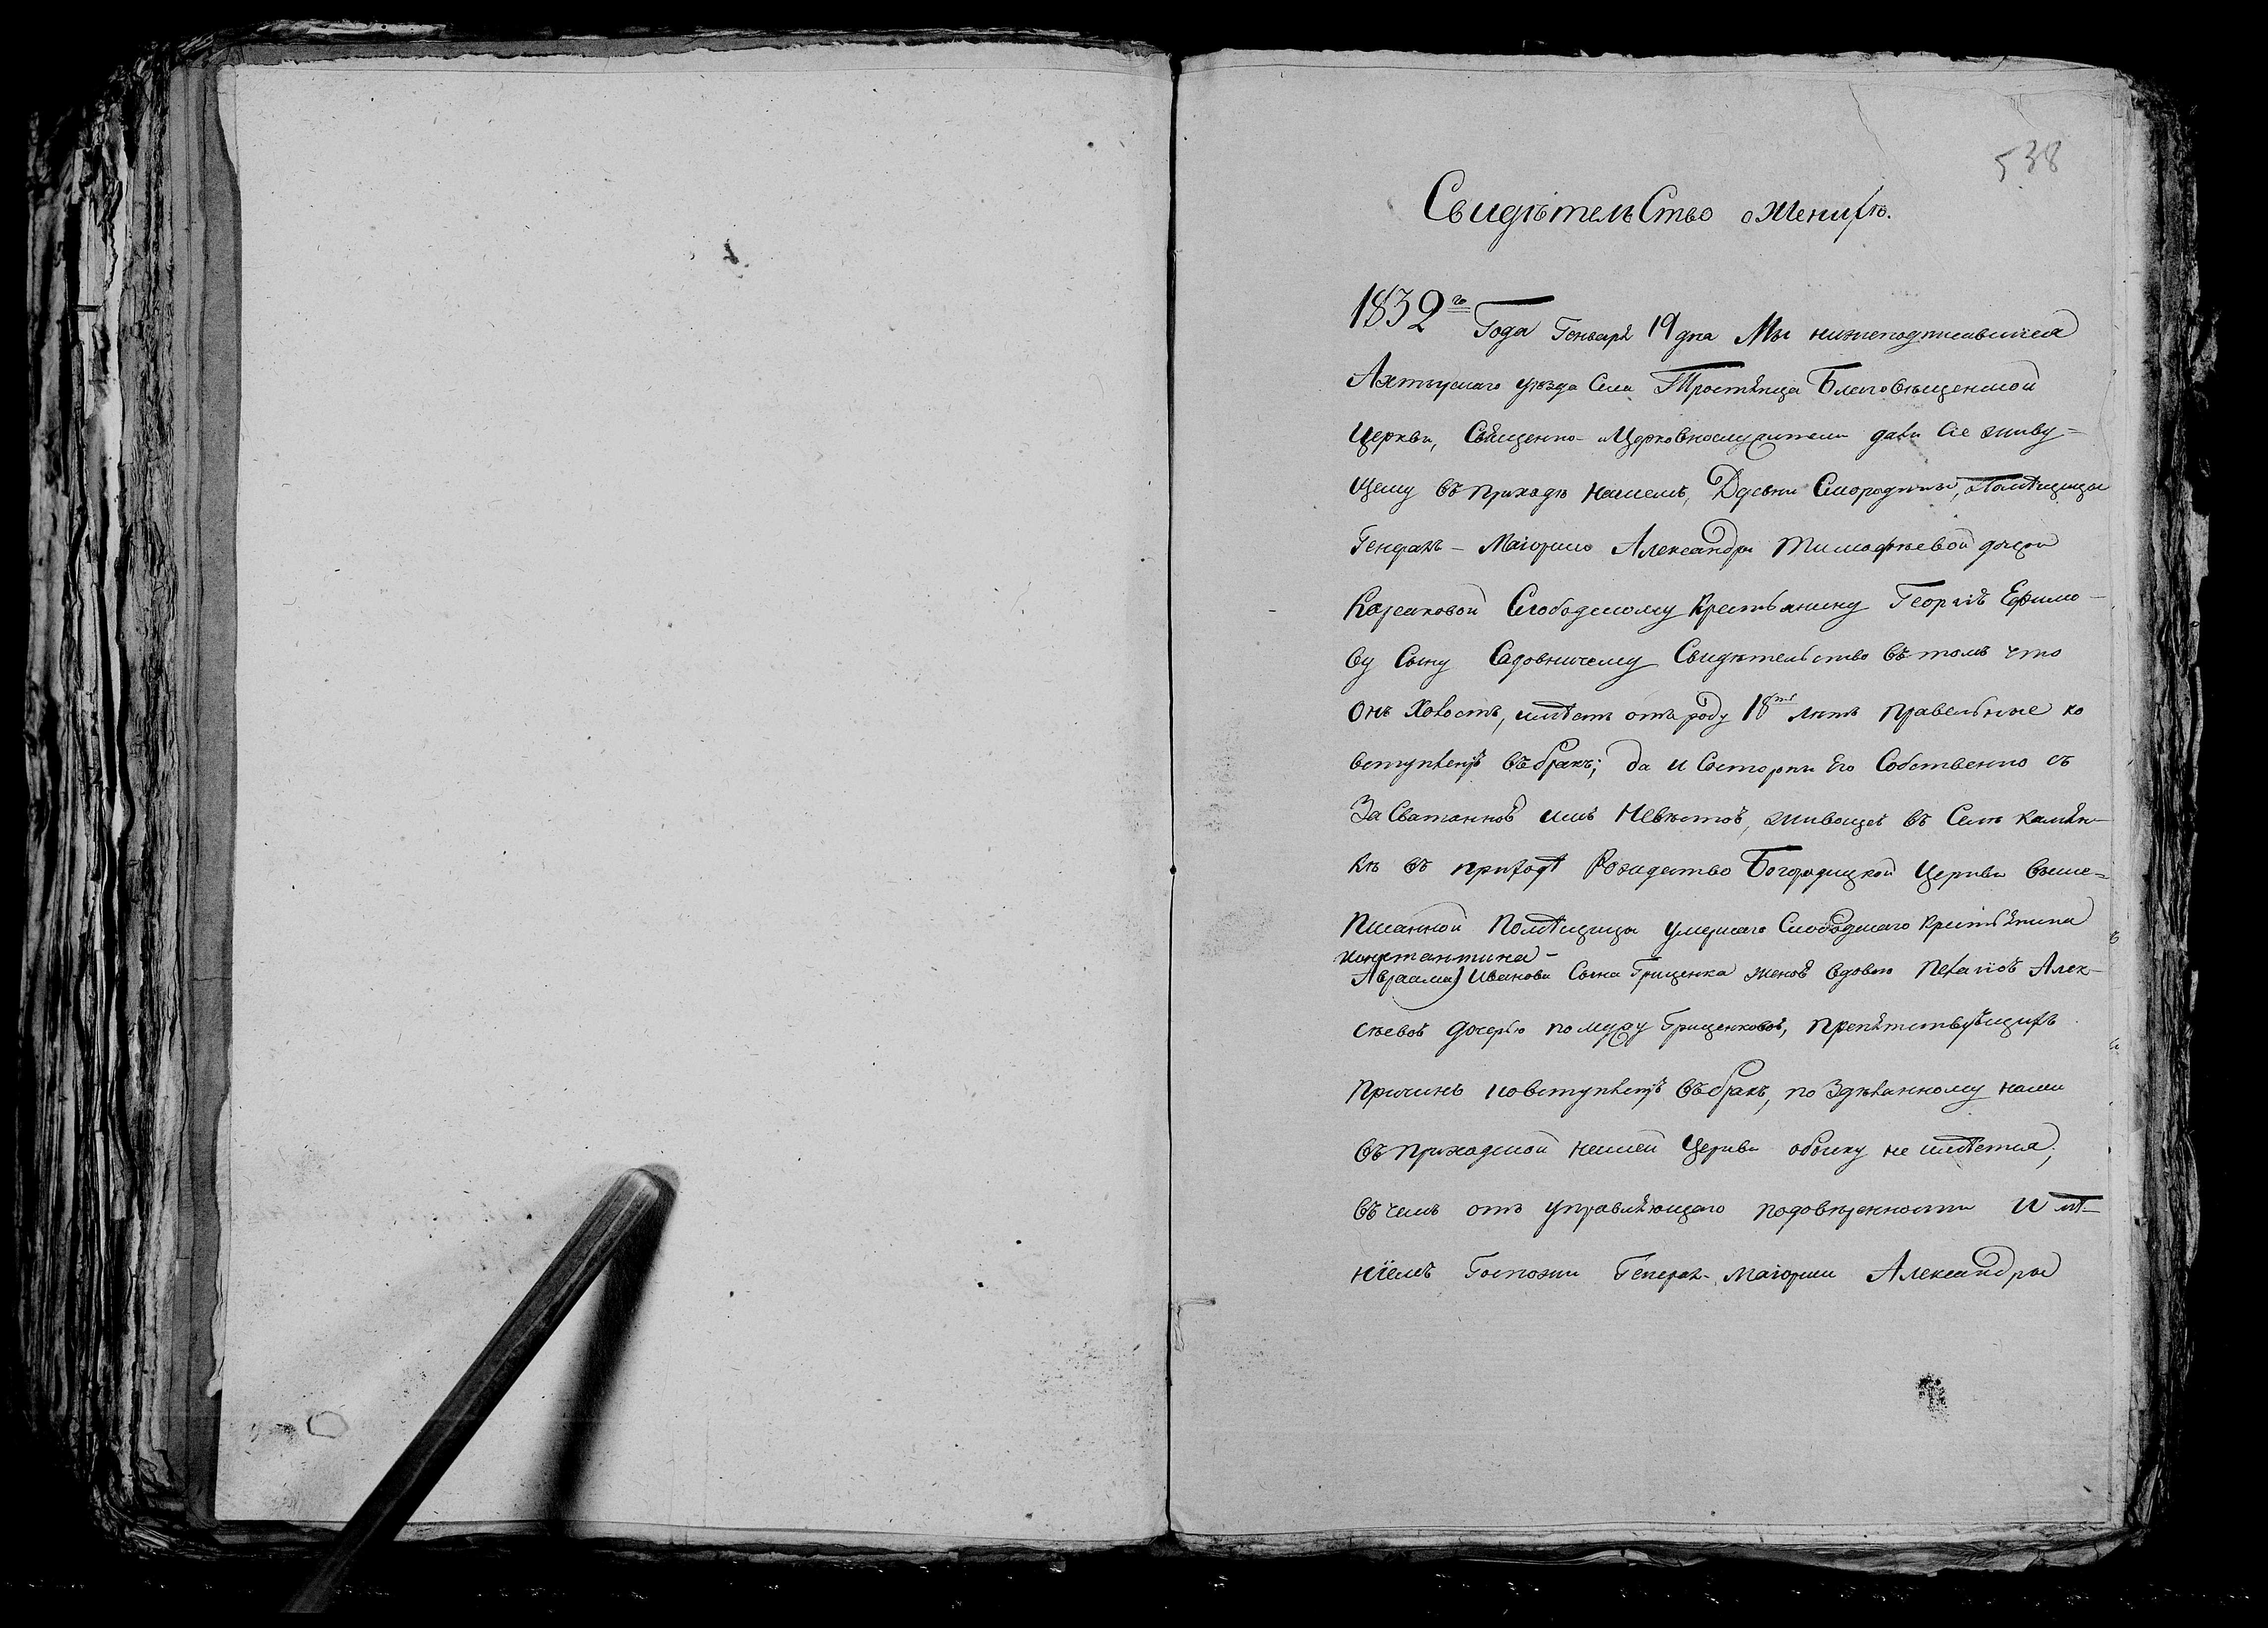 538
Свидѣтельство о Женихѣ.
1832го Года Генваря 19 дня Мы нижеподписавшиеся
Ахтырскаго уѣзда Села Тростянца Благовѣщенской
Церкви, Священно- и Церковнослужители дали сіе живу-
щему въ приходѣ нашемъ, Помѣщицы
Генералъ-Маіорши Александры Тимофѣевой дочери
Корсаковой Слободскому Крестьянину Георгію Ефимо-
ву Сыну Садовничему Свидѣтельство въ томъ что
Онъ Холостъ, имѣетъ отъ роду 18ть лѣтъ правельные ко
вступленію въ бракъ; да и Състорны Его Собственно съ
За Сватанной имъ Невѣстой, живущей въ Селѣ Камян-
кѣ въ приходѣ Рождество Богородицкой Церкви выше-
писанной Помѣщицы умершаго Слободскаго Крестьянина
Константина-
Авраама) Иванова Сына Гриценка женой вдовою Пелагіой Алек-
сѣевой дочерью по мужу Гриценковой, препятствующихъ
Причинъ ковступленію въ бракъ, по Здѣланному нами
въ приходской нашей Церкви обыску не имѣется,
въ чемъ отъ управляющаго подовѣренности Имѣ-
ніемъ Госпожи Генералъ-Маіорши Александры